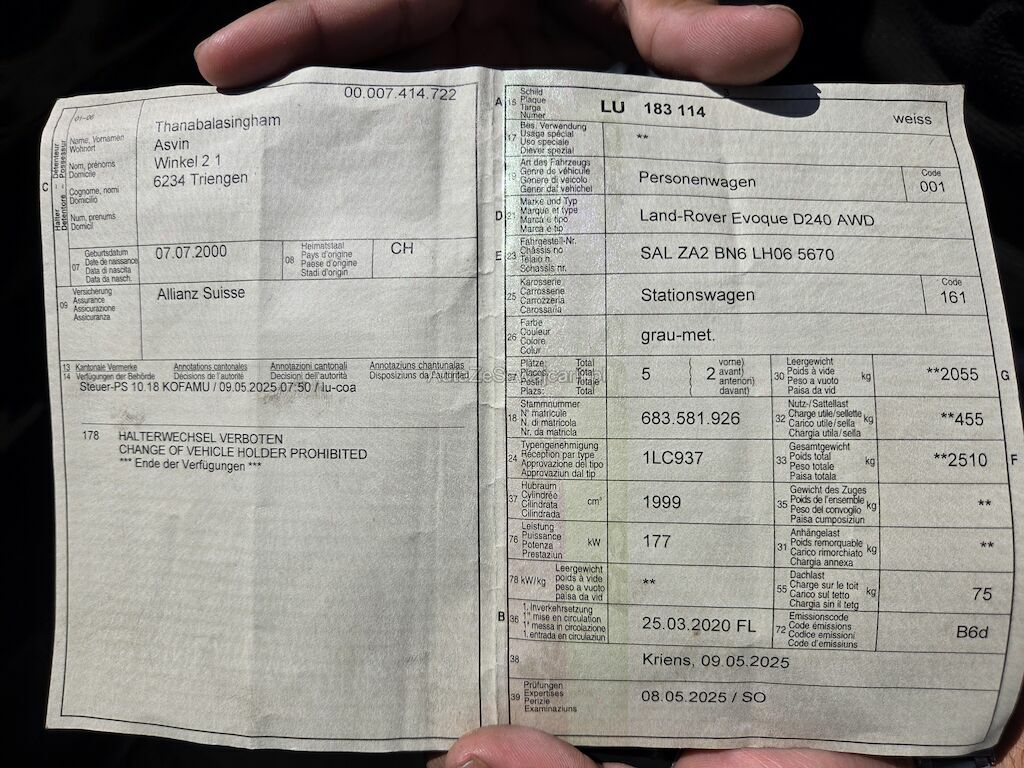 00.007.414.722
01-06
Name, Vornamen
Wohnort
Nom, prénoms
Domicile
Cognome, nomi
Domicilio
Num, prenums
Domicil
C
Halter – Détenteur
Detentore – Possessur
Thanabalasingham
Asvin
Winkel 2 1
6234 Triengen
07
Geburtsdatum
Date de naissance
Data di nascita
Data da nasch.
07.07.2000
08
Heimatstaat
Pays d'origine
Paese d'origine
Stadi d'origin
CH
09
Versicherung
Assurance
Assicurazione
Assicuranza
Allianz Suisse
13 Kantonale Vermerke
14 Verfügungen der Behörde
Annotations cantonales
Décisions de l'autorité
Annotazioni cantonali
Decisioni dell'autorità
Annotaziuns chantunalas
Disposiziuns da l'autorität
Steuer-PS 10.18 KOFAMU / 09.05.2025 07:50 / lu-coa
178 HALTERWECHSEL VERBOTEN
CHANGE OF VEHICLE HOLDER PROHIBITED
*** Ende der Verfügungen ***
A
15
Schild
Plaque
Targa
Numer
LU 183 114
weiss
17
Bes. Verwendung
Usage spécial
Uso speciale
Diever spezial
**
19
Art des Fahrzeugs
Genre de véhicule
Genere di veicolo
Gener dal vehichel
Personenwagen
Code
001
D
21
Marke und Typ
Marque et type
Marca e tipo
Marca e tip
Land-Rover Evoque D240 AWD
E
23
Fahrgestell-Nr.
Châssis no
Telaio n.
Schassis nr.
SAL ZA2 BN6 LH06 5670
25
Karosserie
Carrosserie
Carrozzeria
Carossaria
Stationswagen
Code
161
26
Farbe
Couleur
Colore
Colur
grau-met.
Plätze: Total
Places: Total
Posti: Totale
Plazs: Total
5
( 2
vorne)
avant)
anteriori)
davant)
30
Leergewicht
Poids à vide
Peso a vuoto
Paisa da vid
kg
**2055
G
18
Stammnummer
N° matricule
N. di matricola
Nr. da matricla
683.581.926
32
Nutz-/Sattellast
Charge utile/sellette
Carico utile/sella
Chargia utila/sella
kg
**455
24
Typengenehmigung
Réception par type
Approvazione del tipo
Approvaziun dal tip
1LC937
33
Gesamtgewicht
Poids total
Peso totale
Paisa totala
kg
**2510
F
37
Hubraum
Cylindrée
Cilindrata
Cilindrada
cm³
1999
35
Gewicht des Zuges
Poids de l'ensemble
Peso del convoglio
Paisa cumposiziun
kg
**
76
Leistung
Puissance
Potenza
Prestaziun
kW
177
31
Anhängelast
Poids remorquable
Carico rimorchiato
Chargia annexa
kg
**
78 kW/kg
Leergewicht
poids à vide
peso a vuoto
paisa da vid
**
55
Dachlast
Charge sur le toit
Carico sul tetto
Chargia sin il tetg
kg
75
B
36
1. Inverkehrsetzung
1re mise en circulation
1a messa in circolazione
1. entrada en circulaziun
25.03.2020 FL
72
Emissionscode
Code émissions
Codice emissioni
Code d'emissiuns
B6d
38
Kriens, 09.05.2025
39
Prüfungen
Expertises
Perizie
Examinaziuns
08.05.2025 / SO